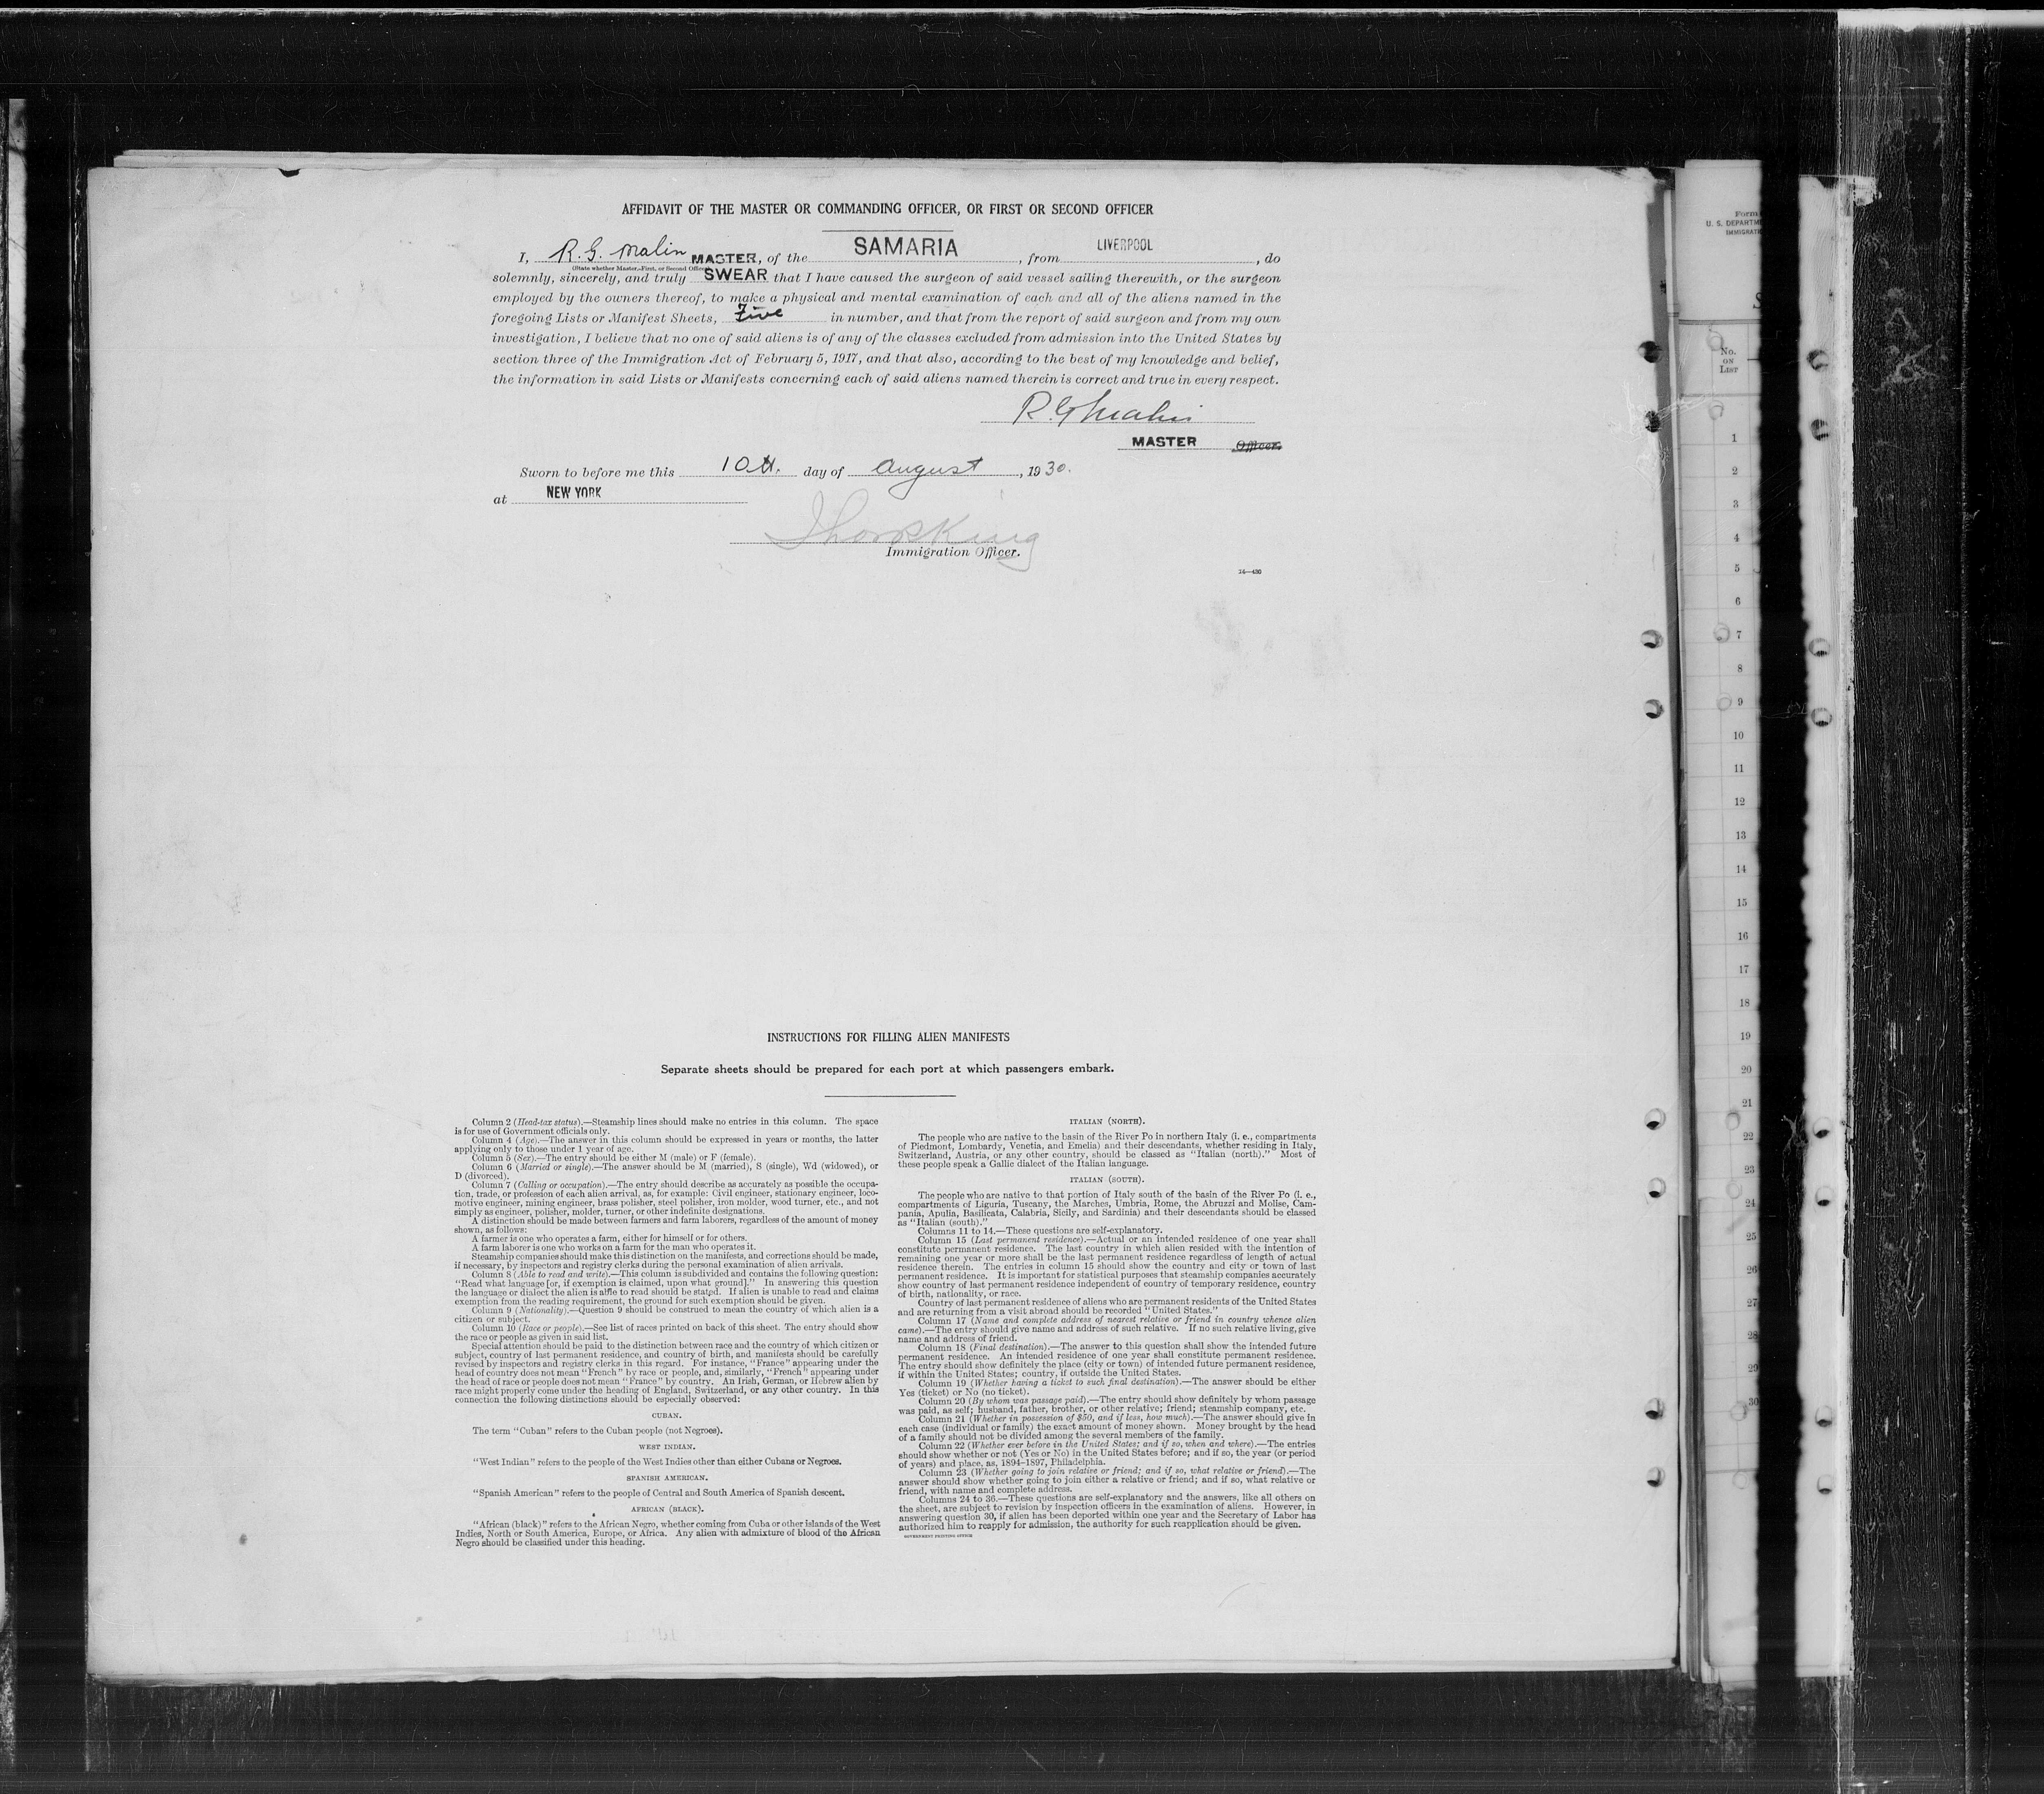 AFFIDAVIT OF THE MASTER OR COMMANDING OFFICER, OR FIRST OR SECOND OFFICER
I, R. G. Malin MASTER, of the SAMARIA, from LIVERPOOL, do
(State whether Master, First, or Second Officer)
solemnly, sincerely, and truly SWEAR that I have caused the surgeon of said vessel sailing therewith, or the surgeon
employed by the owners thereof, to make a physical and mental examination of each and all of the aliens named in the
foregoing Lists or Manifest Sheets, Five in number, and that from the report of said surgeon and from my own
investigation, I believe that no one of said aliens is of any of the classes excluded from admission into the United States by
section three of the Immigration Act of February 5, 1917, and that also, according to the best of my knowledge and belief,
the information in said Lists or Manifests concerning each of said aliens named therein is correct and true in every respect.
R. G. Malin
MASTER Officer.
Sworn to before me this 10th. day of august, 1930.
at NEW YORK
Immigration Officer.
14—430
INSTRUCTIONS FOR FILLING ALIEN MANIFESTS
Separate sheets should be prepared for each port at which passengers embark.
Column 2 (Head-tax status).—Steamship lines should make no entries in this column. The space
is for use of Government officials only.
Column 4 (Age).—The answer in this column should be expressed in years or months, the latter
applying only to those under 1 year of age.
Column 5 (Sex).—The entry should be either M (male) or F (female).
Column 6 (Married or single).—The answer should be M (married), S (single), Wd (widowed), or
D (divorced).
Column 7 (Calling or occupation).—The entry should describe as accurately as possible the occupa-
tion, trade, or profession of each alien arrival, as, for example: Civil engineer, stationary engineer, loco-
motive engineer, mining engineer, brass polisher, steel polisher, iron molder, wood turner, etc., and not
simply as engineer, polisher, molder, turner, or other indefinite designations.
A distinction should be made between farmers and farm laborers, regardless of the amount of money
shown, as follows:
A farmer is one who operates a farm, either for himself or for others.
A farm laborer is one who works on a farm for the man who operates it.
Steamship companies should make this distinction on the manifests, and corrections should be made,
if necessary, by inspectors and registry clerks during the personal examination of alien arrivals.
Column 8 (Able to read and write).—This column is subdivided and contains the following question:
"Read what language [or, if exemption is claimed, upon what ground]." In answering this question
the language or dialect the alien is able to read should be stated. If alien is unable to read and claims
exemption from the reading requirement, the ground for such exemption should be given.
Column 9 (Nationality).—Question 9 should be construed to mean the country of which alien is a
citizen or subject.
Column 10 (Race or people).—See list of races printed on back of this sheet. The entry should show
the race or people as given in said list.
Special attention should be paid to the distinction between race and the country of which citizen or
subject, country of last permanent residence, and country of birth, and manifests should be carefully
revised by inspectors and registry clerks in this regard. For instance, "France" appearing under the
head of country does not mean "French" by race or people, and, similarly, "French" appearing under
the head of race or people does not mean "France" by country. An Irish, German, or Hebrew alien by
race might properly come under the heading of England, Switzerland, or any other country. In this
connection the following distinctions should be especially observed:
CUBAN.
The term "Cuban" refers to the Cuban people (not Negroes).
WEST INDIAN.
"West Indian" refers to the people of the West Indies other than either Cubans or Negroes.
SPANISH AMERICAN.
"Spanish American" refers to the people of Central and South America of Spanish descent.
AFRICAN (BLACK).
"African (black)" refers to the African Negro, whether coming from Cuba or other islands of the West
Indies, North or South America, Europe, or Africa. Any alien with admixture of blood of the African
Negro should be classified under this heading.
ITALIAN (NORTH).
The people who are native to the basin of the River Po in northern Italy (i. e., compartments
of Piedmont, Lombardy, Venetia, and Emelia) and their descendants, whether residing in Italy,
Switzerland, Austria, or any other country, should be classed as "Italian (north)." Most of
these people speak a Gallic dialect of the Italian language.
ITALIAN (SOUTH).
The people who are native to that portion of Italy south of the basin of the River Po (i. e.,
compartments of Liguria, Tuscany, the Marches, Umbria, Rome, the Abruzzi and Molise, Cam-
pania, Apulia, Basilicata, Calabria, Sicily, and Sardinia) and their descendants should be classed
as "Italian (south)."
Columns 11 to 14.—These questions are self-explanatory.
Column 15 (Last permanent residence).—Actual or an intended residence of one year shall
constitute permanent residence. The last country in which alien resided with the intention of
remaining one year or more shall be the last permanent residence regardless of length of actual
residence therein. The entries in column 15 should show the country and city or town of last
permanent residence. It is important for statistical purposes that steamship companies accurately
show country of last permanent residence independent of country of temporary residence, country
of birth, nationality, or race.
Country of last permanent residence of aliens who are permanent residents of the United States
and are returning from a visit abroad should be recorded "United States."
Column 17 (Name and complete address of nearest relative or friend in country whence alien
came).—The entry should give name and address of such relative. If no such relative living, give
name and address of friend.
Column 18 (Final destination).—The answer to this question shall show the intended future
permanent residence. An intended residence of one year shall constitute permanent residence.
The entry should show definitely the place (city or town) of intended future permanent residence,
if within the United States; country, if outside the United States.
Column 19 (Whether having a ticket to such final destination).—The answer should be either
Yes (ticket) or No (no ticket).
Column 20 (By whom was passage paid).—The entry should show definitely by whom passage
was paid, as self; husband, father, brother, or other relative; friend; steamship company, etc.
Column 21 (Whether in possession of $50, and if less, how much).—The answer should give in
each case (individual or family) the exact amount of money shown. Money brought by the head
of a family should not be divided among the several members of the family.
Column 22 (Whether ever before in the United States; and if so, when and where).—The entries
should show whether or not (Yes or No) in the United States before; and if so, the year (or period
of years) and place, as, 1894–1897, Philadelphia.
Column 23 (Whether going to join relative or friend; and if so, what relative or friend).—The
answer should show whether going to join either a relative or friend; and if so, what relative or
friend, with name and complete address.
Columns 24 to 36.—These questions are self-explanatory and the answers, like all others on
the sheet, are subject to revision by inspection officers in the examination of aliens. However, in
answering question 30, if alien has been deported within one year and the Secretary of Labor has
authorized him to reapply for admission, the authority for such reapplication should be given.
GOVERNMENT PRINTING OFFICE
Form
U. S. DEPARTME
IMMIGRATI
S
No.
ON
LIST
1
2
3
4
5
6
7
8
9
10
11
12
13
14
15
16
17
18
19
20
21
22
23
24
25
26
27
28
29
30